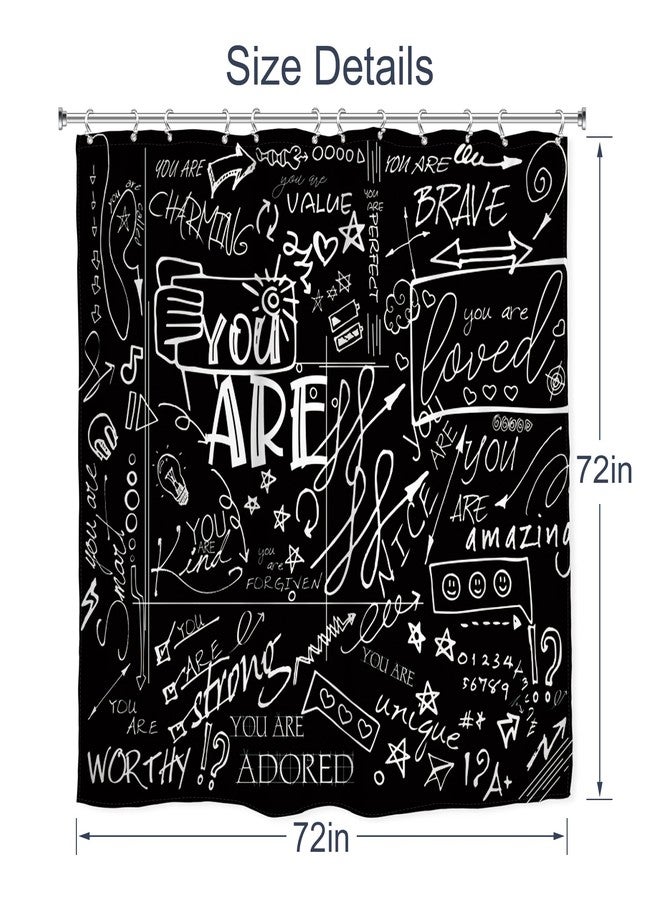 Size Details
YOU ARE
CHARMING
you are
VALUE
YOU
ARE
PERFECT
YOU ARE
BRAVE
you are
called
you are
loved
YOU
ARE
you
ARE
NICE
YOU
ARE
amazing
72in
you are
Smart
YOU
ARE
Kind
you
are
FORGIVEN
YOU
ARE
strong
YOU ARE
unique
01234
56789
#*
!?
YOU
ARE
WORTHY
!?
YOU ARE
ADORED
!?
A+
72in